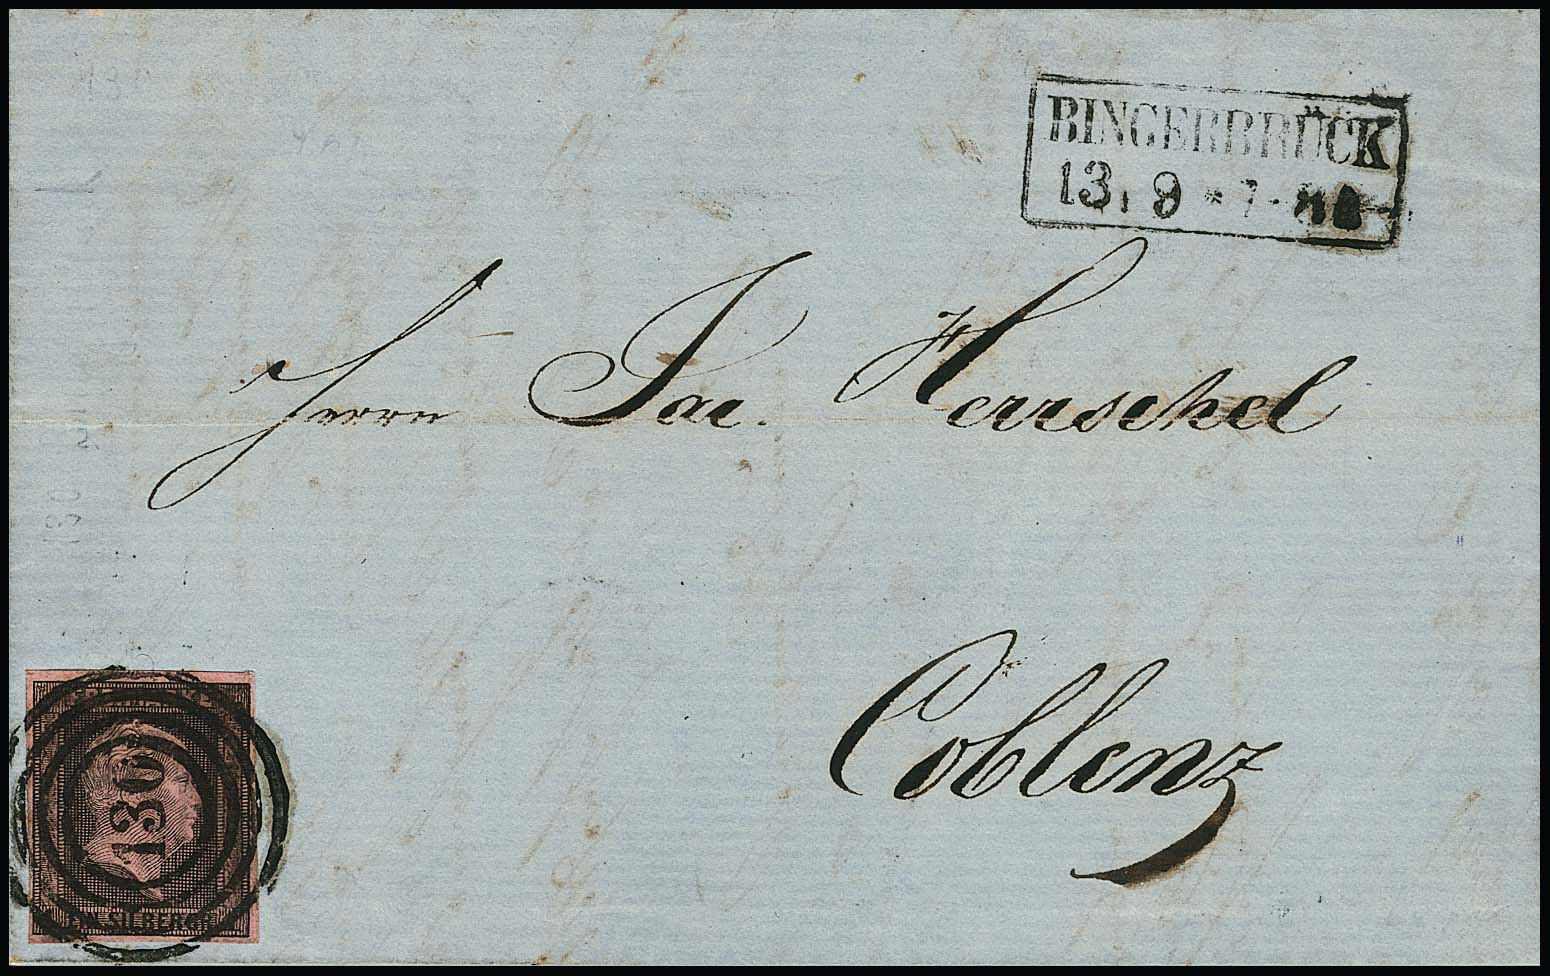 BINGERBRÜCK
13 9 * 7-
Herrn Jac. Herrschel
Coblenz
130
EIN SILBERGR.